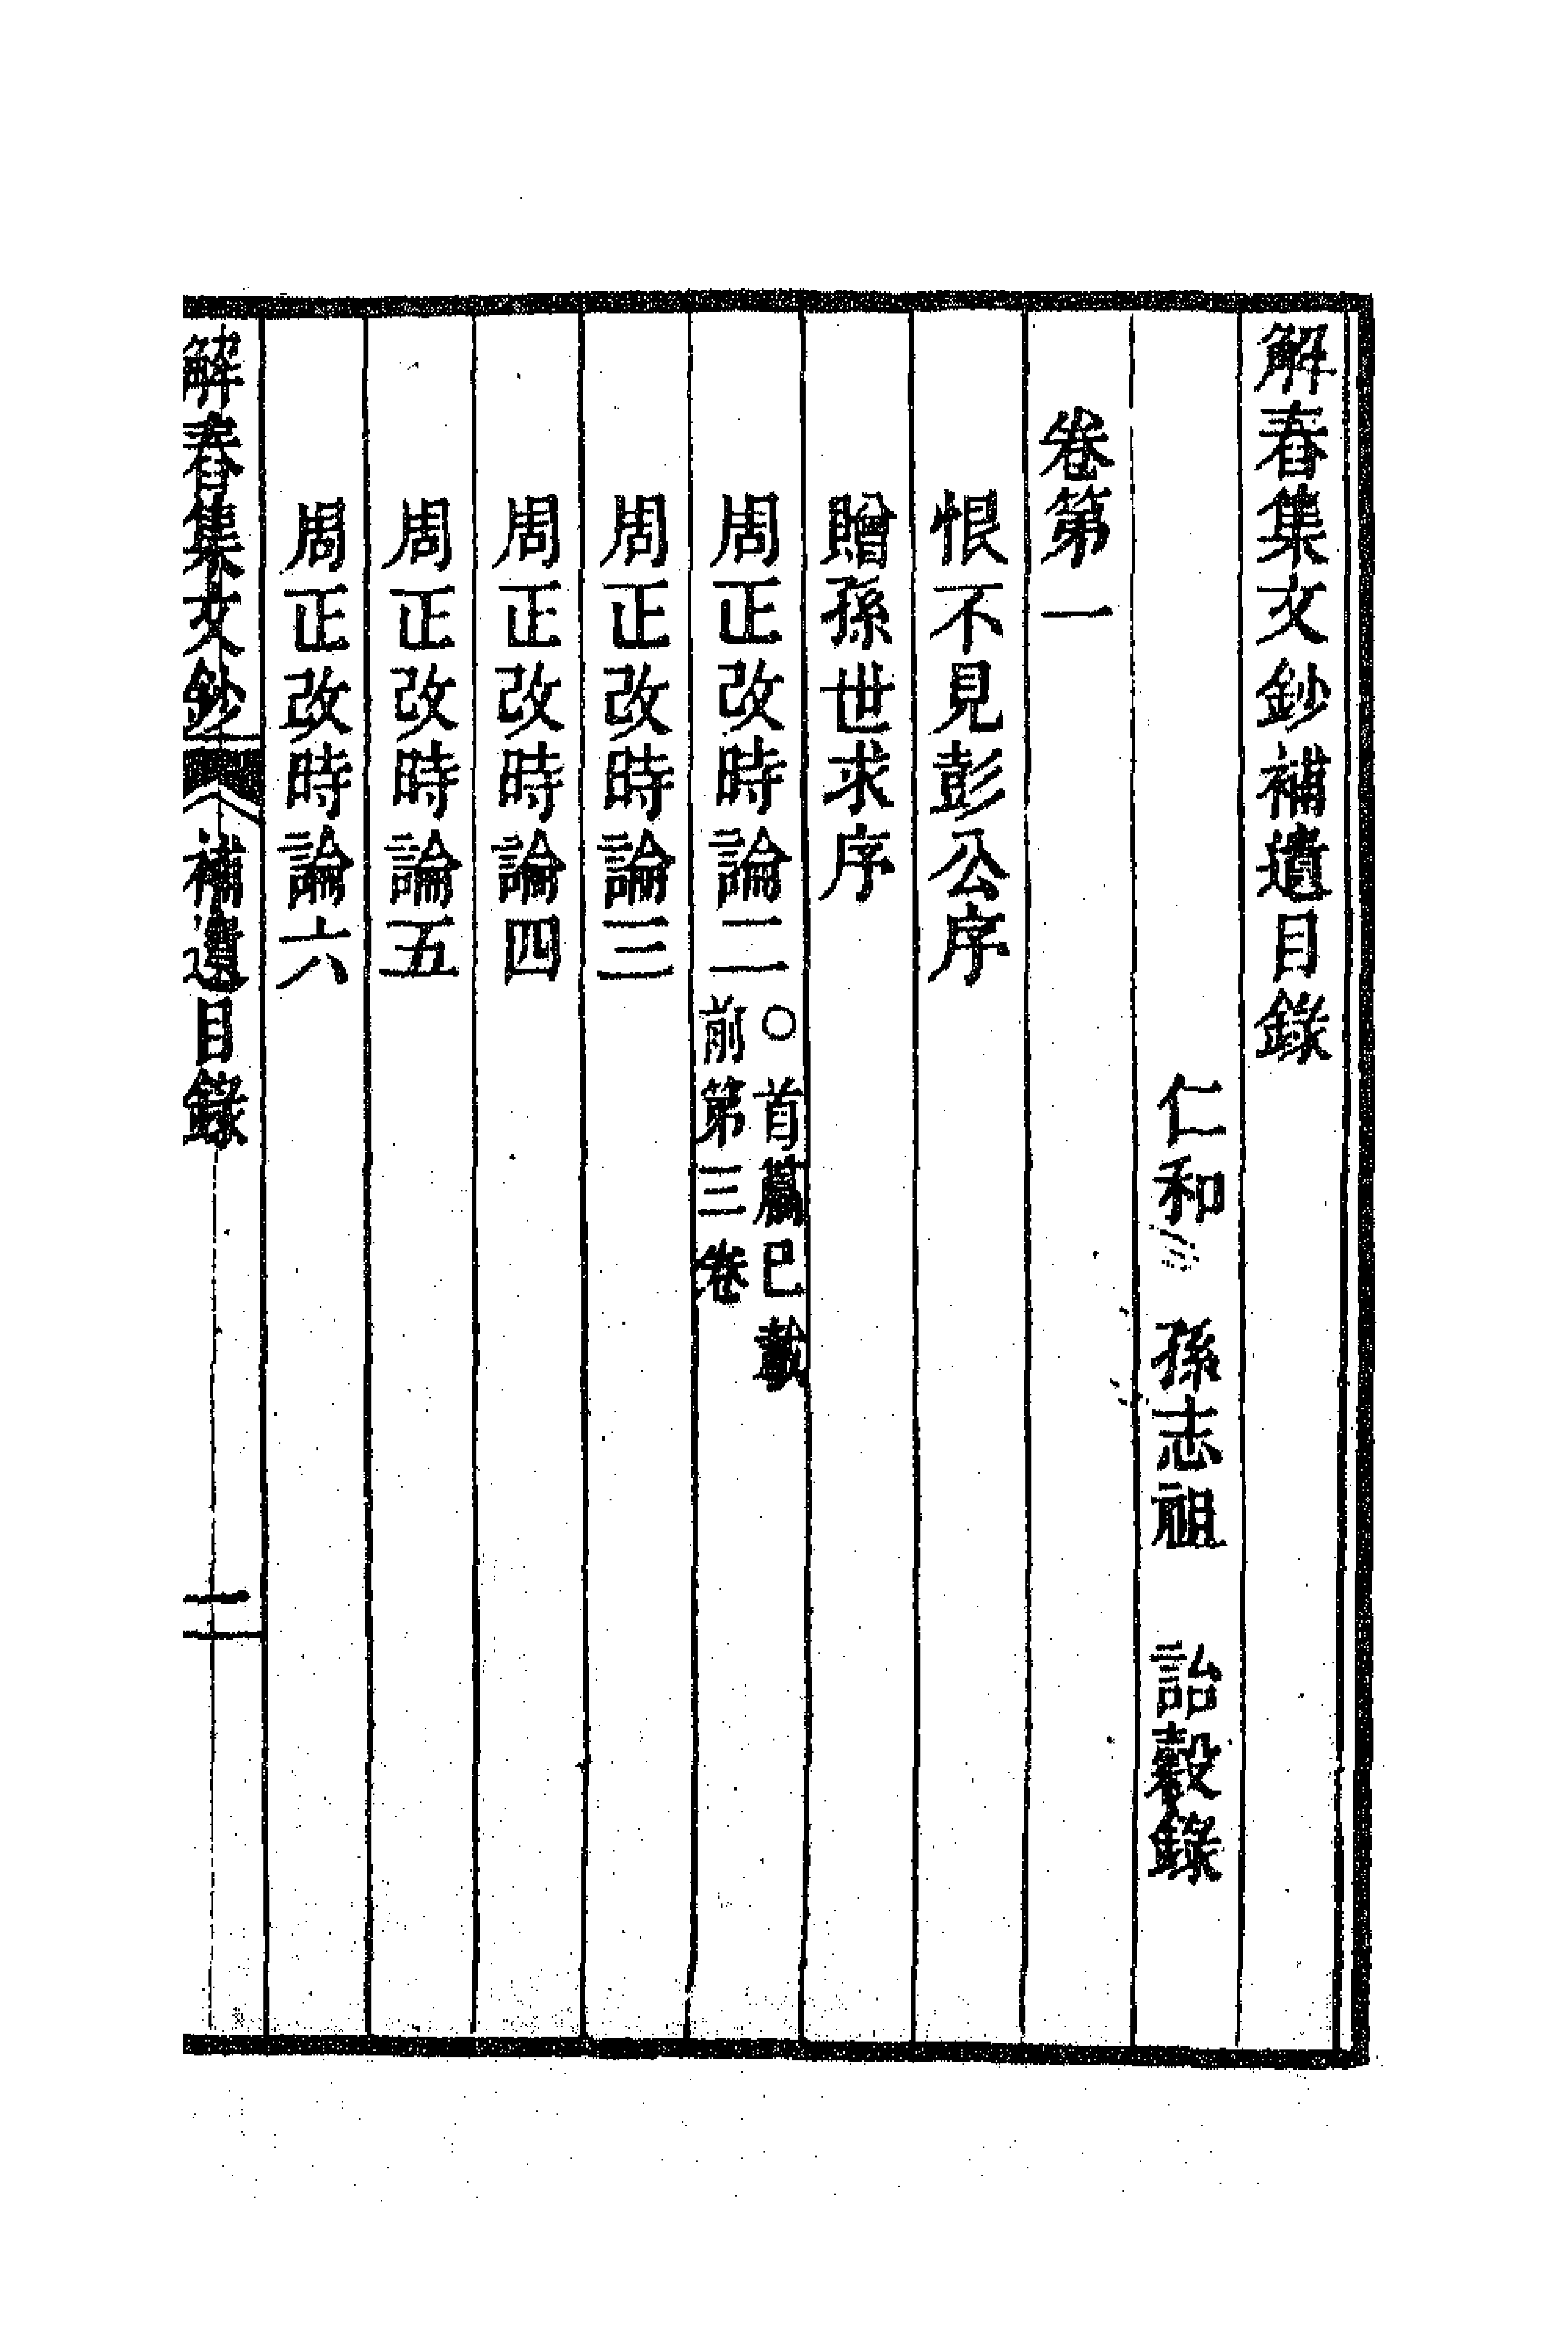 解舂集文鈔補遺目錄
仁和 孫志祖 詒穀錄
卷第一
恨不見彭公序
贈孫世求序
周正改時論二○首篇已載前第三卷
周正改時論三
周正改時論四
周正改時論五
周正改時論六
解舂集文鈔 補遺目錄 一